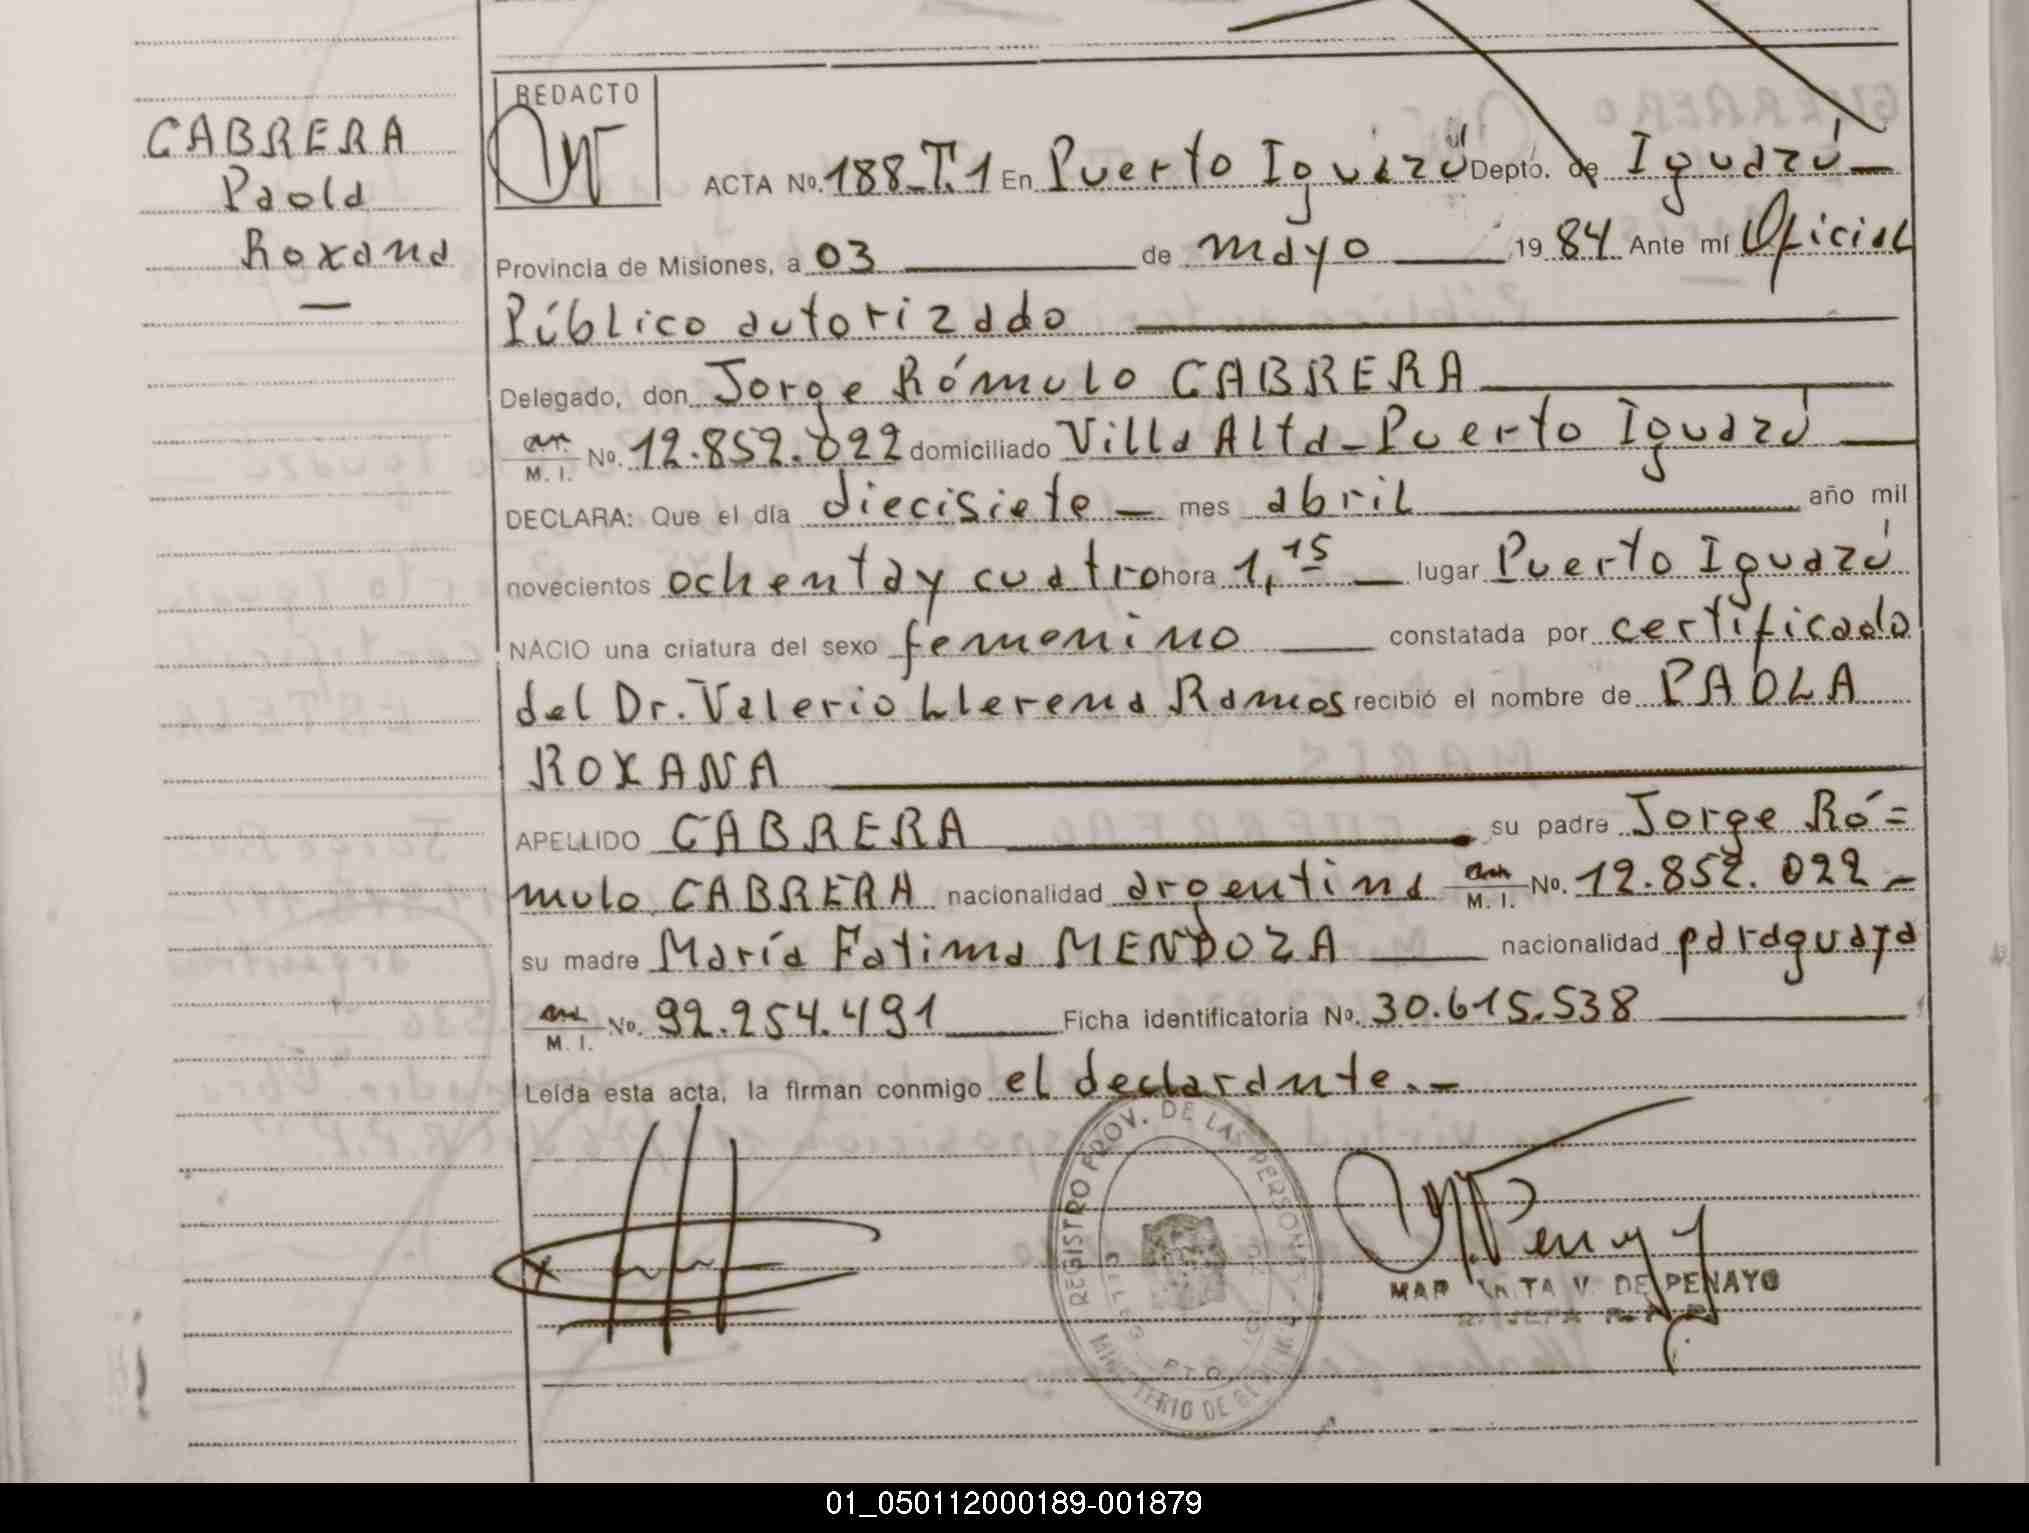 CABRERA
Paola
Roxana
—
REDACTO
ACTA No. 188-T.1 En Puerto Iguazú Depto. de Iguazú —
Provincia de Misiones, a 03 de mayo 19 84 Ante mí Oficial
Público autorizado
Delegado, don Jorge Rómulo CABRERA
M. I. No. 12.852.022 domiciliado Villa Alta - Puerto Iguazú
DECLARA: Que el día diecisiete — mes abril año mil
novecientos ochenta y cuatro hora 1,15 — lugar Puerto Iguazú
NACIO una criatura del sexo femenino constatada por certificado
del Dr. Valerio Llerena Ramos recibió el nombre de PAOLA
ROXANA
APELLIDO CABRERA su padre Jorge Ró=
mulo CABRERA nacionalidad argentina M. I. No. 12.852.022 -
su madre María Fatima MENDOZA nacionalidad paraguaya
M. I. No. 92.254.491 Ficha identificatoria No. 30.615.538
Leída esta acta, la firman conmigo el declarante. -
REGISTRO PROV. DE LAS PERSONAS
MINISTERIO DE
PTO.
V. DE PENAYO
01_050112000189-001879